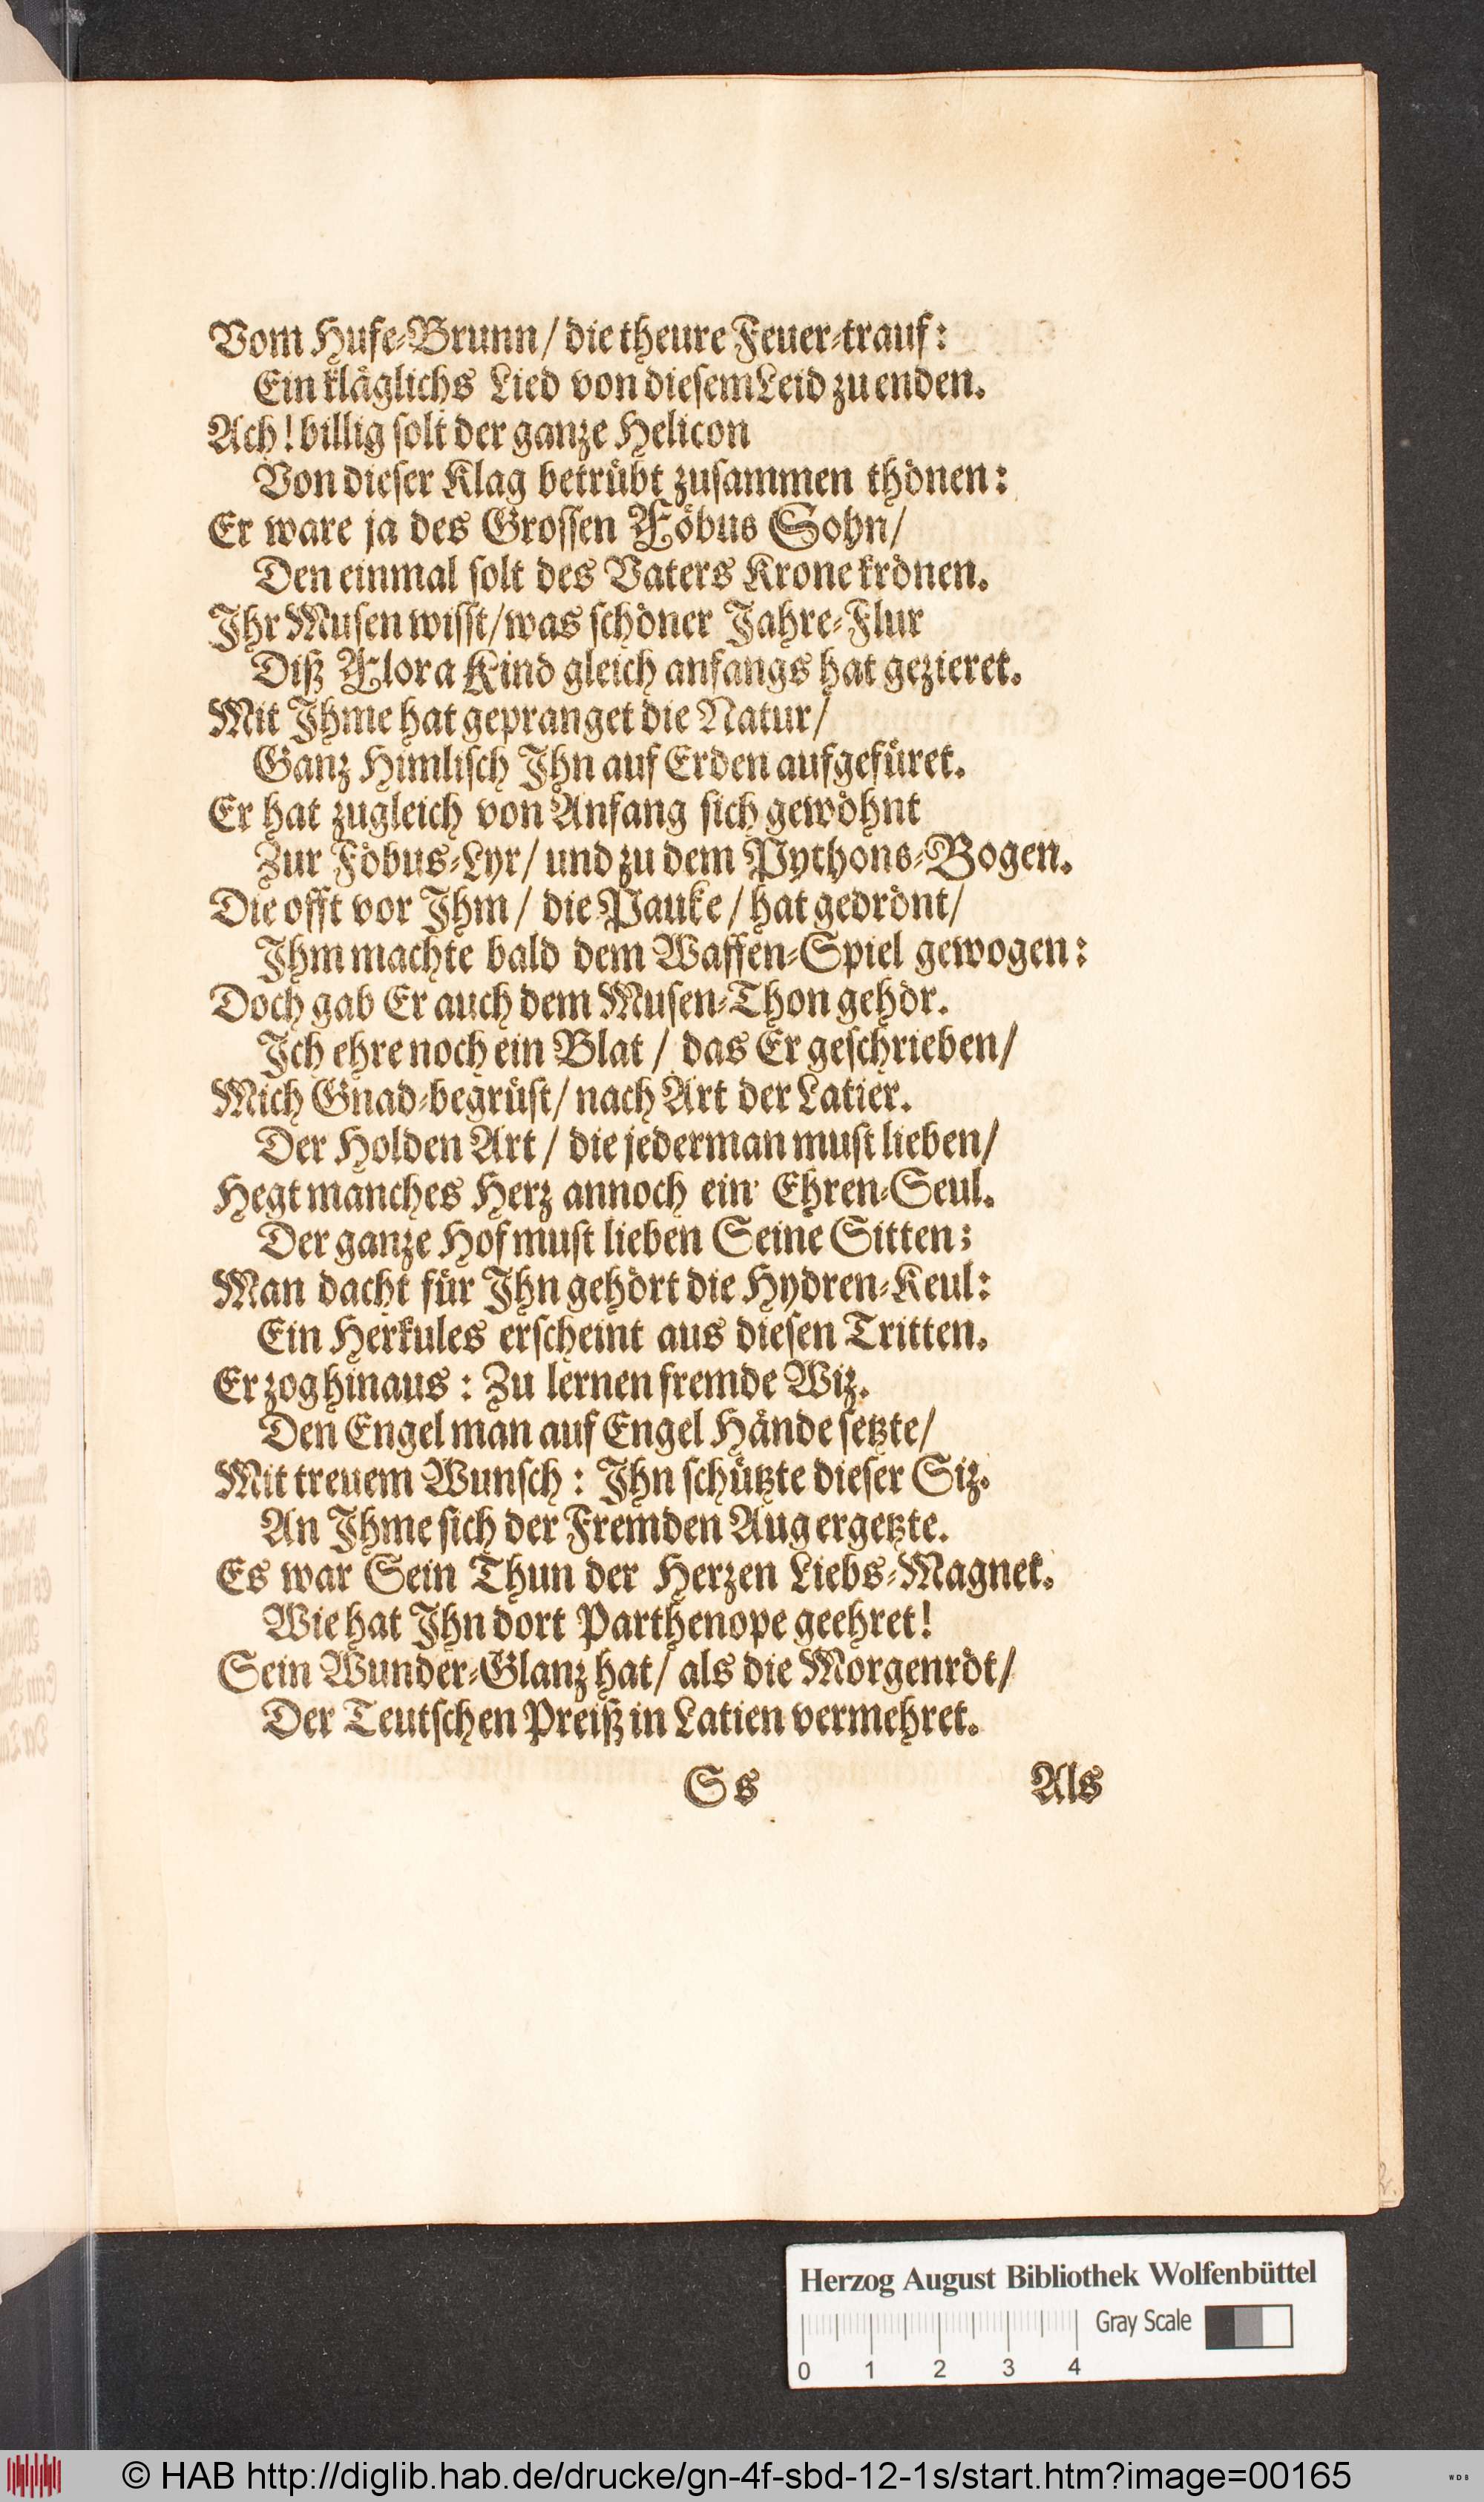 Vom Hufe-Brunn/ die theure Feuer-trauf:
Ein kläglichs Lied von diesem Leid zu enden.
Ach! billig solt der ganze Helicon
Von dieser Klag betrübt zusammen thönen:
Er ware ja des Grossen Föbus Sohn/
Den einmal solt des Vaters Krone krönen.
Ihr Musen wisst/ was schöner Jahre-Flur
Diß Flora Kind gleich anfangs hat gezieret.
Mit Ihme hat gepranget die Natur/
Ganz Himlisch Ihn auf Erden aufgefüret.
Er hat zugleich von Anfang sich gewöhnt
Zur Föbus-Lyr/ und zu dem Pythons-Bogen.
Die offt vor Ihm/ die Pauke/ hat gedrönt/
Ihm machte bald dem Waffen-Spiel gewogen:
Doch gab Er auch dem Musen-Thon gehör.
Ich ehre noch ein Blat/ das Er geschrieben/
Mich Gnad-begrüst/ nach Art der Latier.
Der Holden Art/ die jederman must lieben/
Hegt manches Herz annoch ein' Ehren-Seul.
Der ganze Hof must lieben Seine Sitten:
Man dacht für Ihn gehört die Hydren-Keul:
Ein Herkules erscheint aus diesen Tritten.
Er zog hinaus: Zu lernen fremde Wiz.
Den Engel man auf Engel Hände setzte/
Mit treuem Wunsch: Ihn schützte dieser Siz.
An Ihme sich der Fremden Aug ergetzte.
Es war Sein Thun der Herzen Liebs-Magnet.
Wie hat Ihn dort Parthenope geehret!
Sein Wunder-Glanz hat/ als die Morgenröt/
Der Teutschen Preiß in Latien vermehret.
Ss Als
Herzog August Bibliothek Wolfenbüttel
Gray Scale
0 1 2 3 4
© HAB http://diglib.hab.de/drucke/gn-4f-sbd-12-1s/start.htm?image=00165
WDB